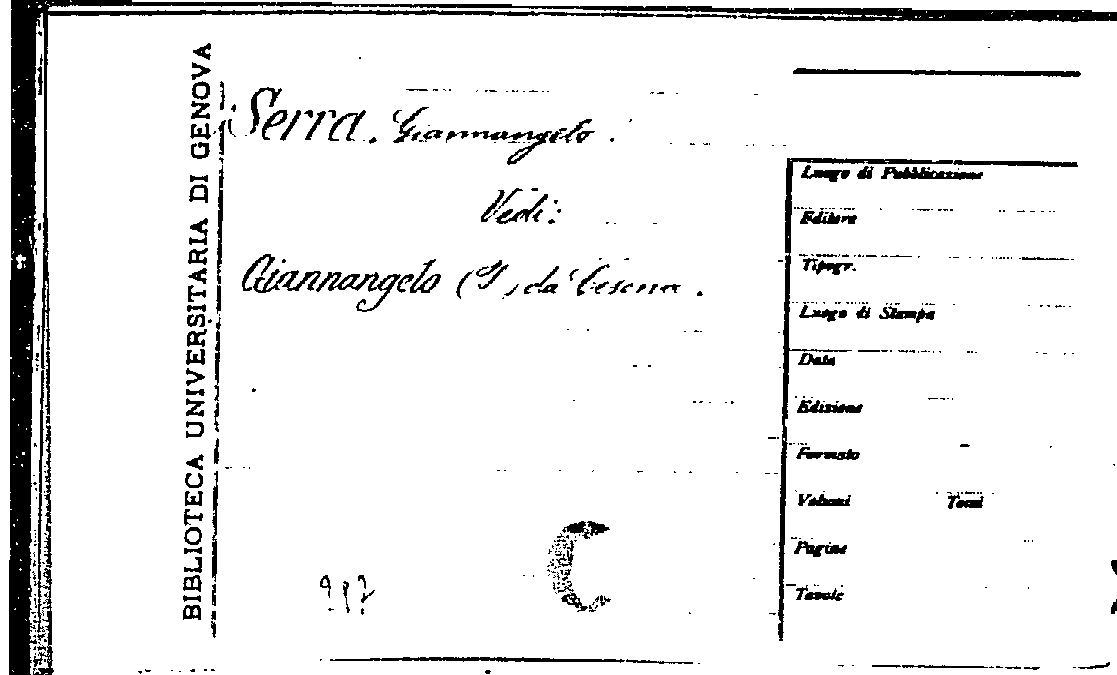 BIBLIOTECA UNIVERSITARIA DI GENOVA
Serra. Giannangelo.
Vedi:
Giannangelo ( ) da Cesena.
Luogo di Pubblicazione
Editore
Tipogr.
Luogo di Stampa
Data
Edizione
Formato
Volumi Tomi
Pagine
Tavole
C